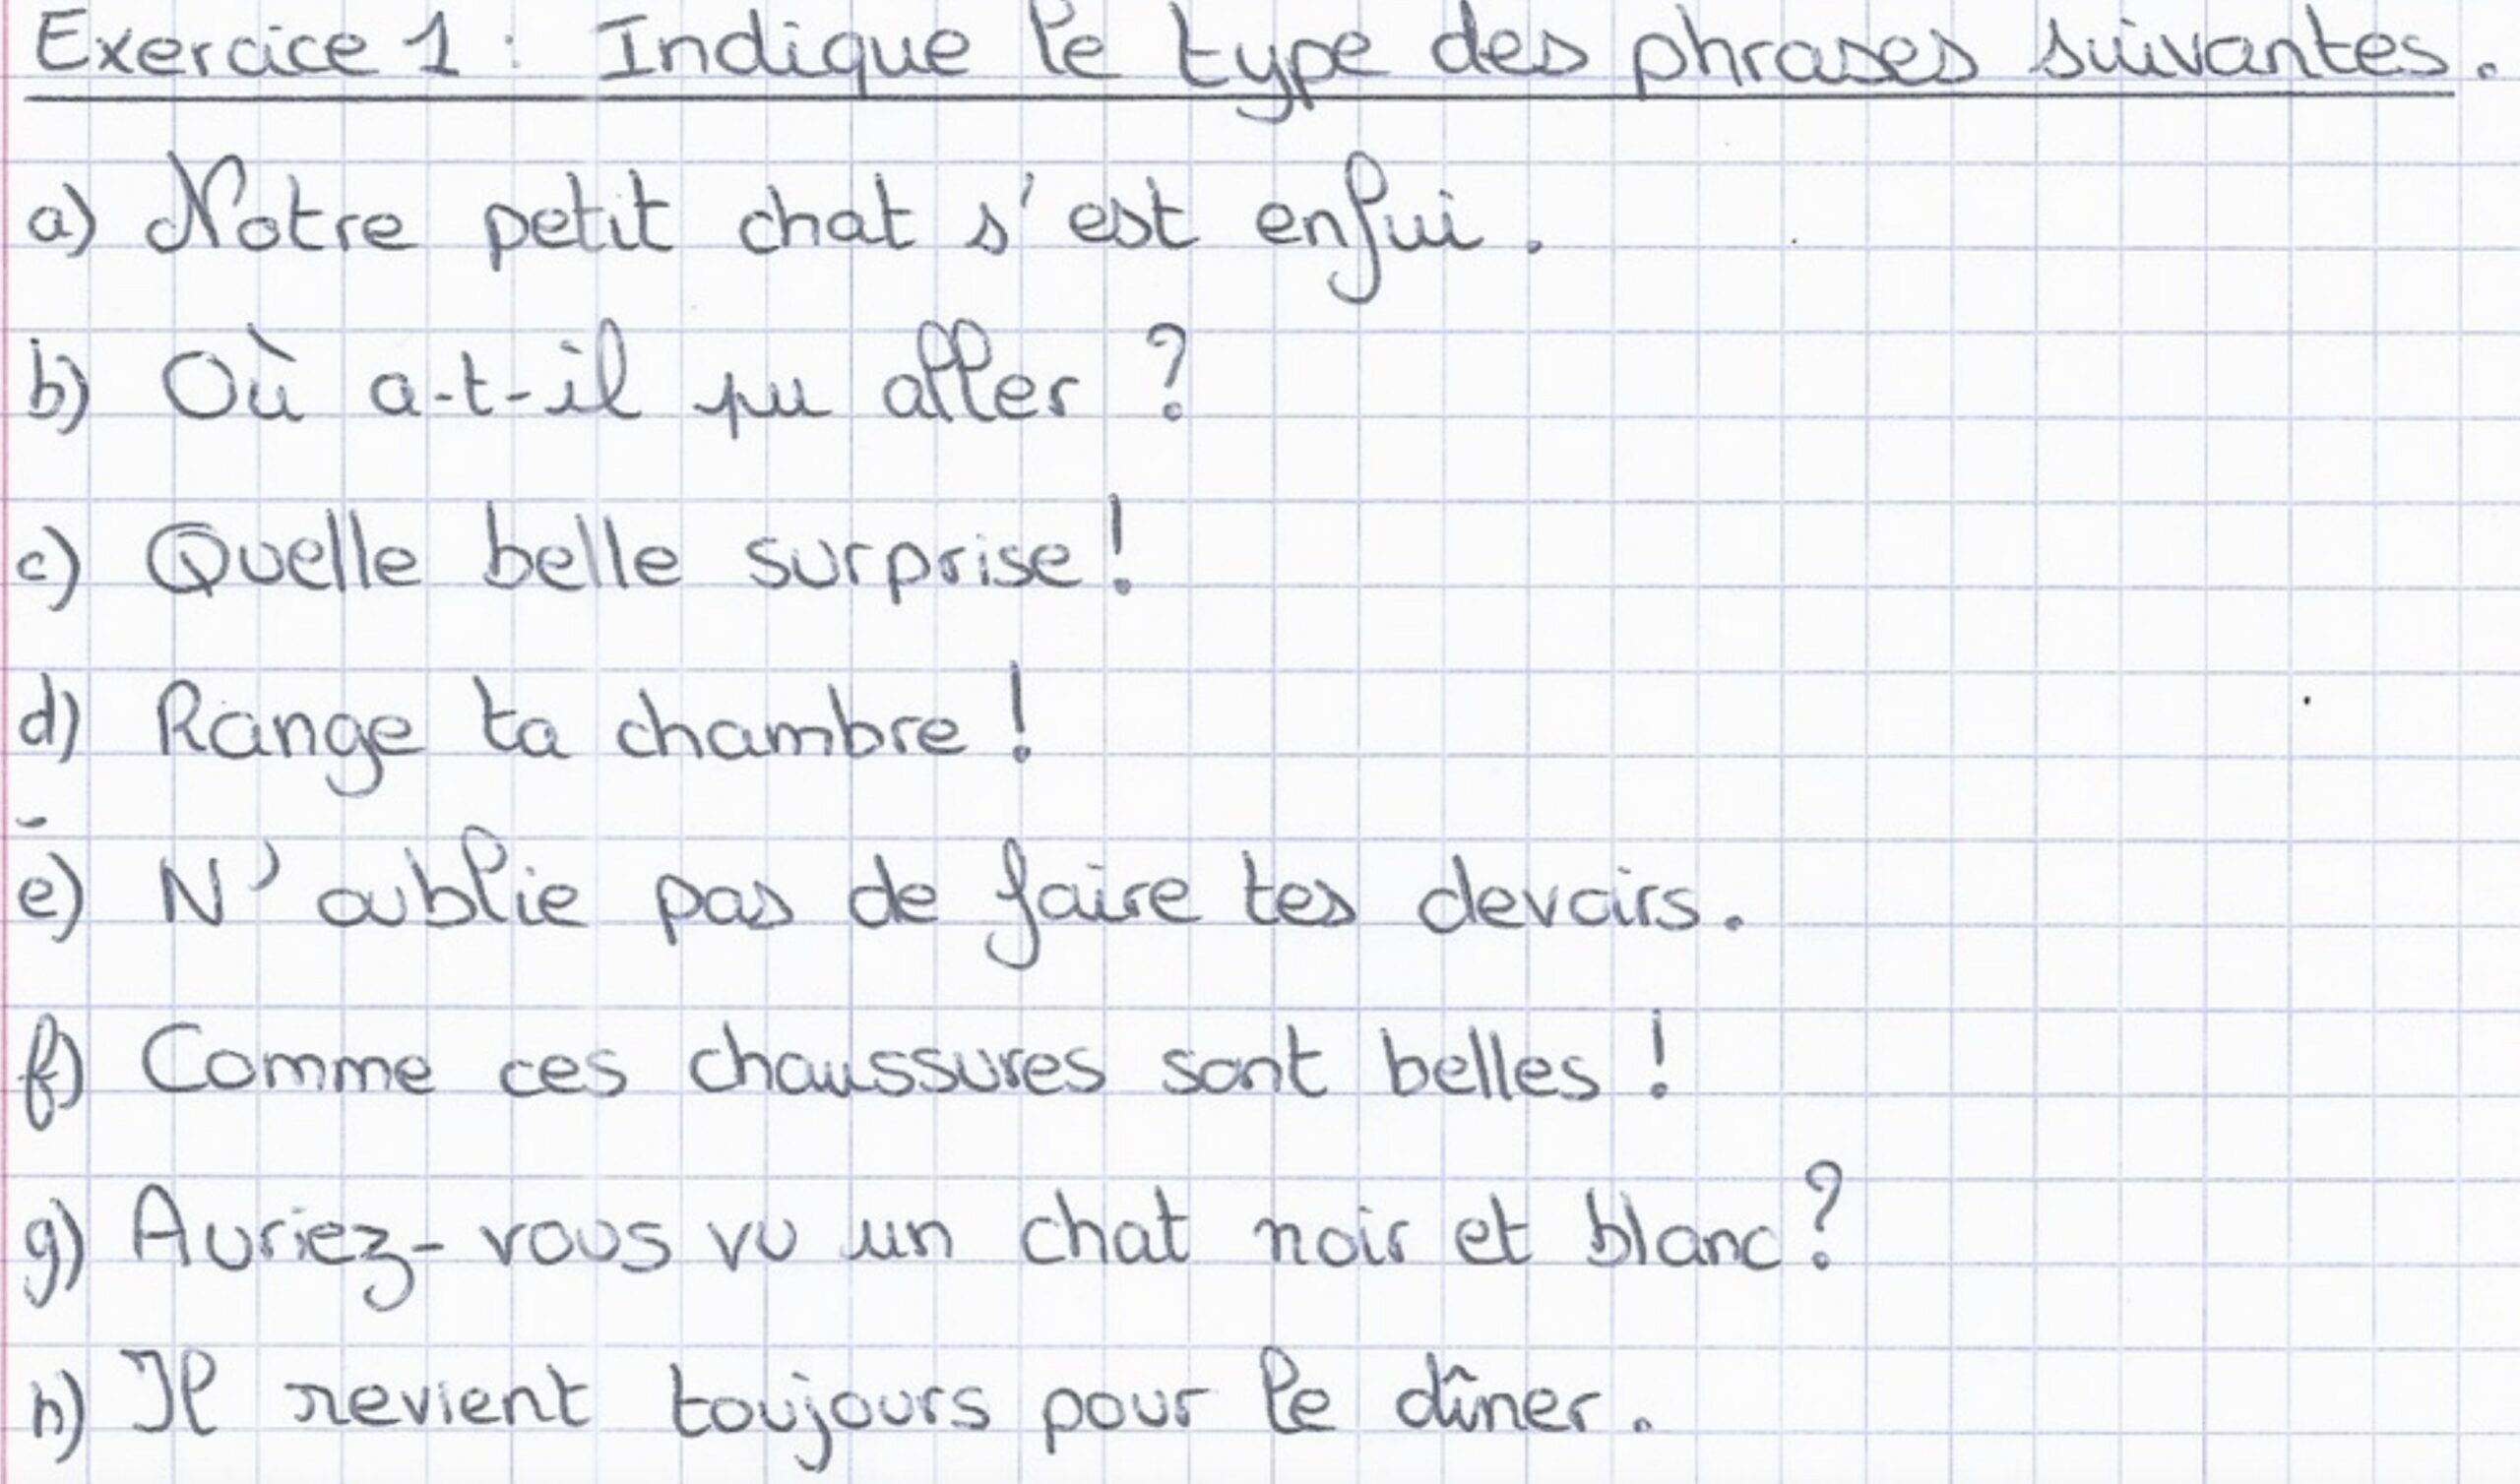 Exercice 1 : Indique le type des phrases suivantes.
a) Notre petit chat s'est enfui.
b) Où a-t-il pu aller ?
c) Quelle belle surprise !
d) Range ta chambre !
e) N'oublie pas de faire tes devoirs.
f) Comme ces chaussures sont belles !
g) Auriez-vous vu un chat noir et blanc ?
h) Il revient toujours pour le dîner.